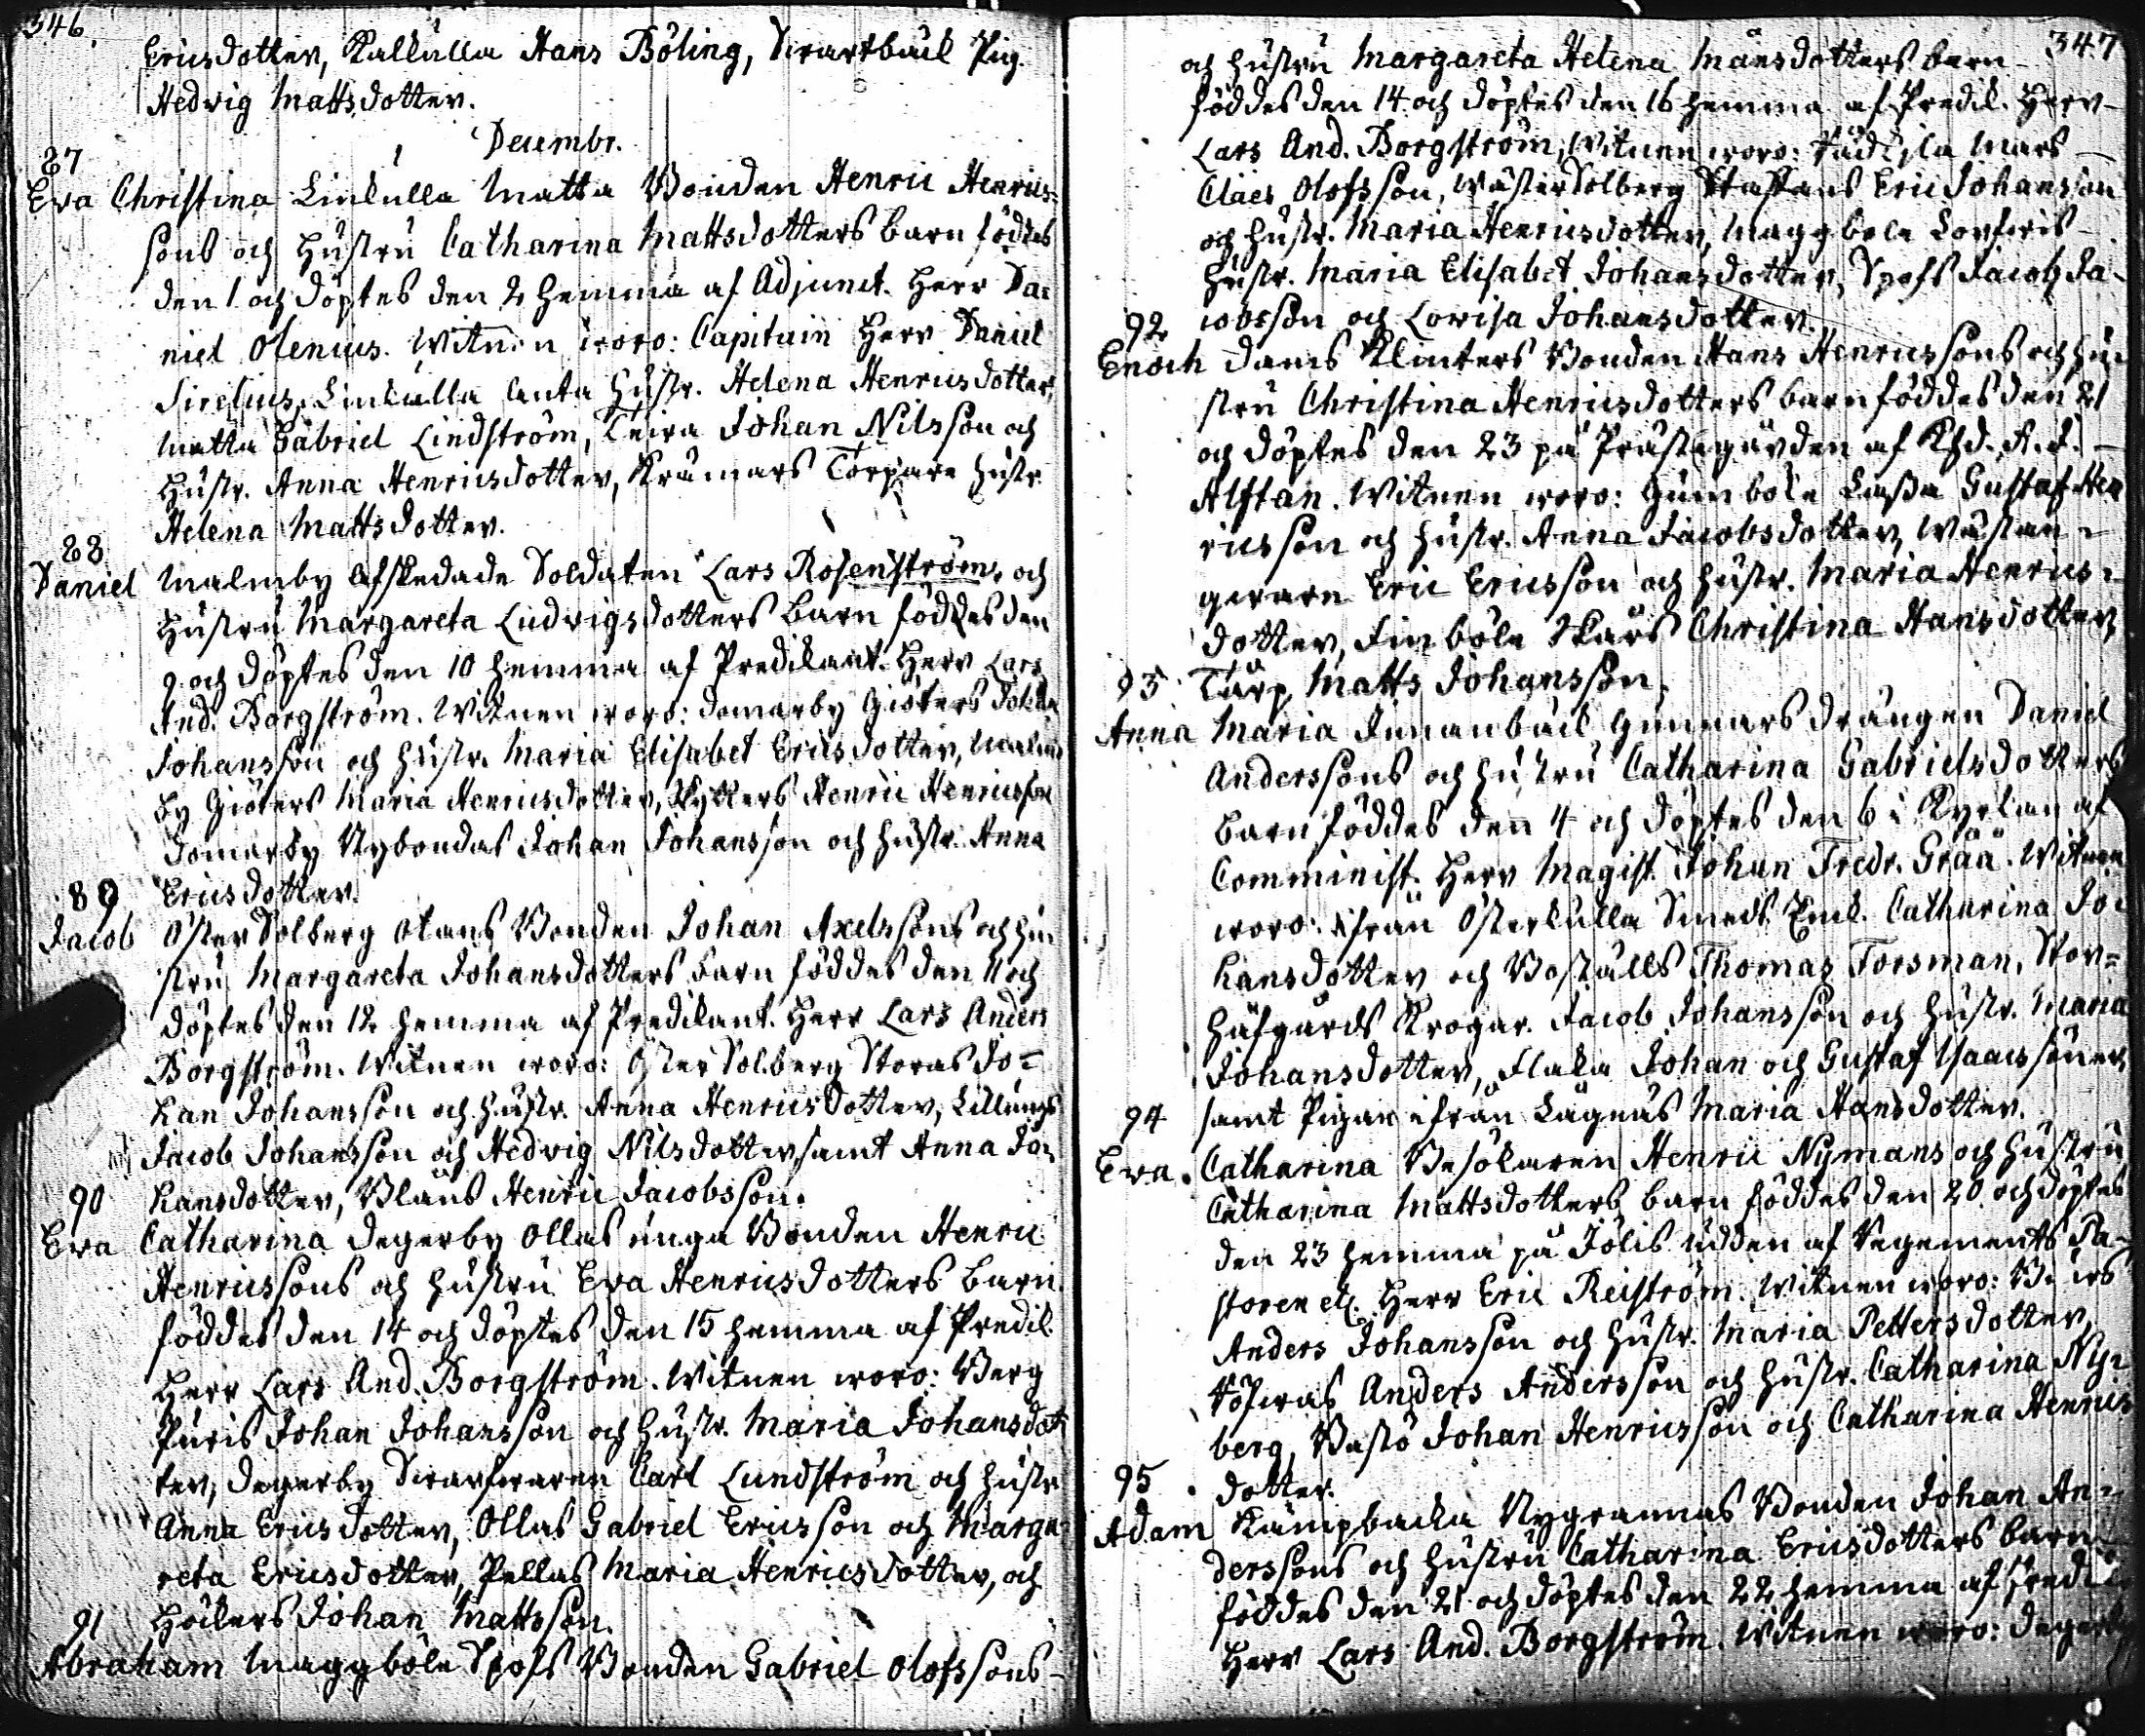 346.
Ericsdotter, Kallkulla Hans Böling, Svartbäck Pig.
Hedvig Mattsdotter.
Decembr.
87
Eva Christina Linkulla Matta Bonden Henric Henrics-
sons och Hustru Catharina Mattsdotters barn föddes
den 1 och döptes den 2 hemma af Adjunct. Herr Da-
niel Olenius. Witnen woro: Capitain Herr Daniel
Sirelius, Linkulla Anta Hustr. Helena Henricsdotter,
Matta Gabriel Lindström, Teira Johan Nilsson och
Hustr. Anna Henricsdotter, Krämars Torpare Hustr
Helena Mattsdotter.
88
Daniel Malmby Afskedade Soldaten Lars Rosenströms och
Hustru Margareta Ludvigsdotters barn föddes den
9 och döptes den 10 hemma af Predikant. Herr Lars
And. Borgström. Witnen woro: Domarby Giöters Johan
Johansson och Hustr. Maria Elisabet Ericsdotter, Malm-
by Giöters Maria Henricsdotter, Skytters Henric Henricsson
Domarby Nybondas Johan Johansson och Hustr. Anna
Ericsdotter.
89
Jacob Öster Solberg Olans Bonden Johan Axelssons och Hu-
stru Margareta Johansdotters barn föddes den 11 och
döptes den 12 hemma af Predikant. Herr Lars Anders
Borgström. Witnen woro: Öster Solberg Storas Jo-
han Johansson och Hustr. Anna Henricsdotter, Lillungs
Jacob Johansson och Hedvig Nilsdotter, samt Anna Jo-
hansdotter, Blåus Henric Jacobsson.
90
Eva Catharina Degerby Ollas unga Bonden Henric
Henricssons och Hustru Eva Henricsdotters barn
föddes den 14 och döptes den 15 hemma af Predik.
Herr Lars And. Borgström. Witnen woro: Berg
Puris Johan Johansson och Hustr. Maria Johansdot-
ter, Degerby Svarfvaren Carl Lundström och Hustr
Anna Ericsdotter, Ollas Gabriel Ericsson och Marga-
reta Ericsdotter, Pellas Maria Henricsdotter, och
Höckers Johan Mattsson.
91
Abraham Maggböle Spofs Bonden Gabriel Olofssons
347
och Hustru Margareta Helena Månsdotters barn
föddes den 14 och döptes den 16 hemma af Predik. Herr
Lars And. Borgström, Witnen woro: Mars
Claes Olofsson, Wäster Solberg Staffans Eric Johansson
och Hustr. Maria Henricsdotter, Maggböle
Hustr. Maria Elisabet Johansdotter, Spofs Jacob Ja-
cobsson och Lowisa Johansdotter.
92
Enoch Dams Klinkers Bonden Hans Henricssons och Hu-
stru Christina Henricsdotters barn föddes den 21
och döptes den 23 på Prästegården af Khd. A. J.
Alftan. Witnen woro: Gumböle Lassa Gustaf Hen
ricsson och Hustr. Anna Jacobsdotter, Wästan-
gierare Eric Ericsson och Hustr. Maria Henrics-
dotter, Finböle Skärs Christina Hansdotter,
93 Tårp Matts Johansson.
Anna Maria Innanbäck Gunnars Drängen Daniel
Anderssons och Hustru Catharina Gabrielsdotters
barn föddes den 4 och döptes den 6 i Kyrkan af
Comminist. Herr Magist. Johan Fredr. Gråå. Witnen
woro: ifrån Österkulla Smeds Enk. Catharina Jo-
hansdotter och Boställs Thomas Forsman, Stor-
Håfgårds Krogar. Jacob Johansson och Hustr. Maria
Johansdotter, Flaka Johan och Gustaf Isaacssöner,
94 samt Pigan ifrån Lågnäs Maria Hansdotter.
Eva. Catharina Besökaren Henric Nymans och Hustru
Catharina Mattsdotters barn föddes den 20 och döptes
den 23 hemma på Jölis udden af Regements Pa-
storen etc. Herr Eric Reiström. Witnen woro:
Anders Johansson och Hustr. Maria Pettersdotter,
Töfwas Anders Andersson och Hustr. Catharina Ny-
berg, Bastö Johan Henricsson och Catharina Henrics
95 dotter.
Adam Kämpbacka Nygrannas Bonden Johan An-
derssons och Hustru Catharina Ericsdotters barn
föddes den 21 och döptes den 22 hemma af Predik
Herr Lars And. Borgström. Witnen woro: Degerby